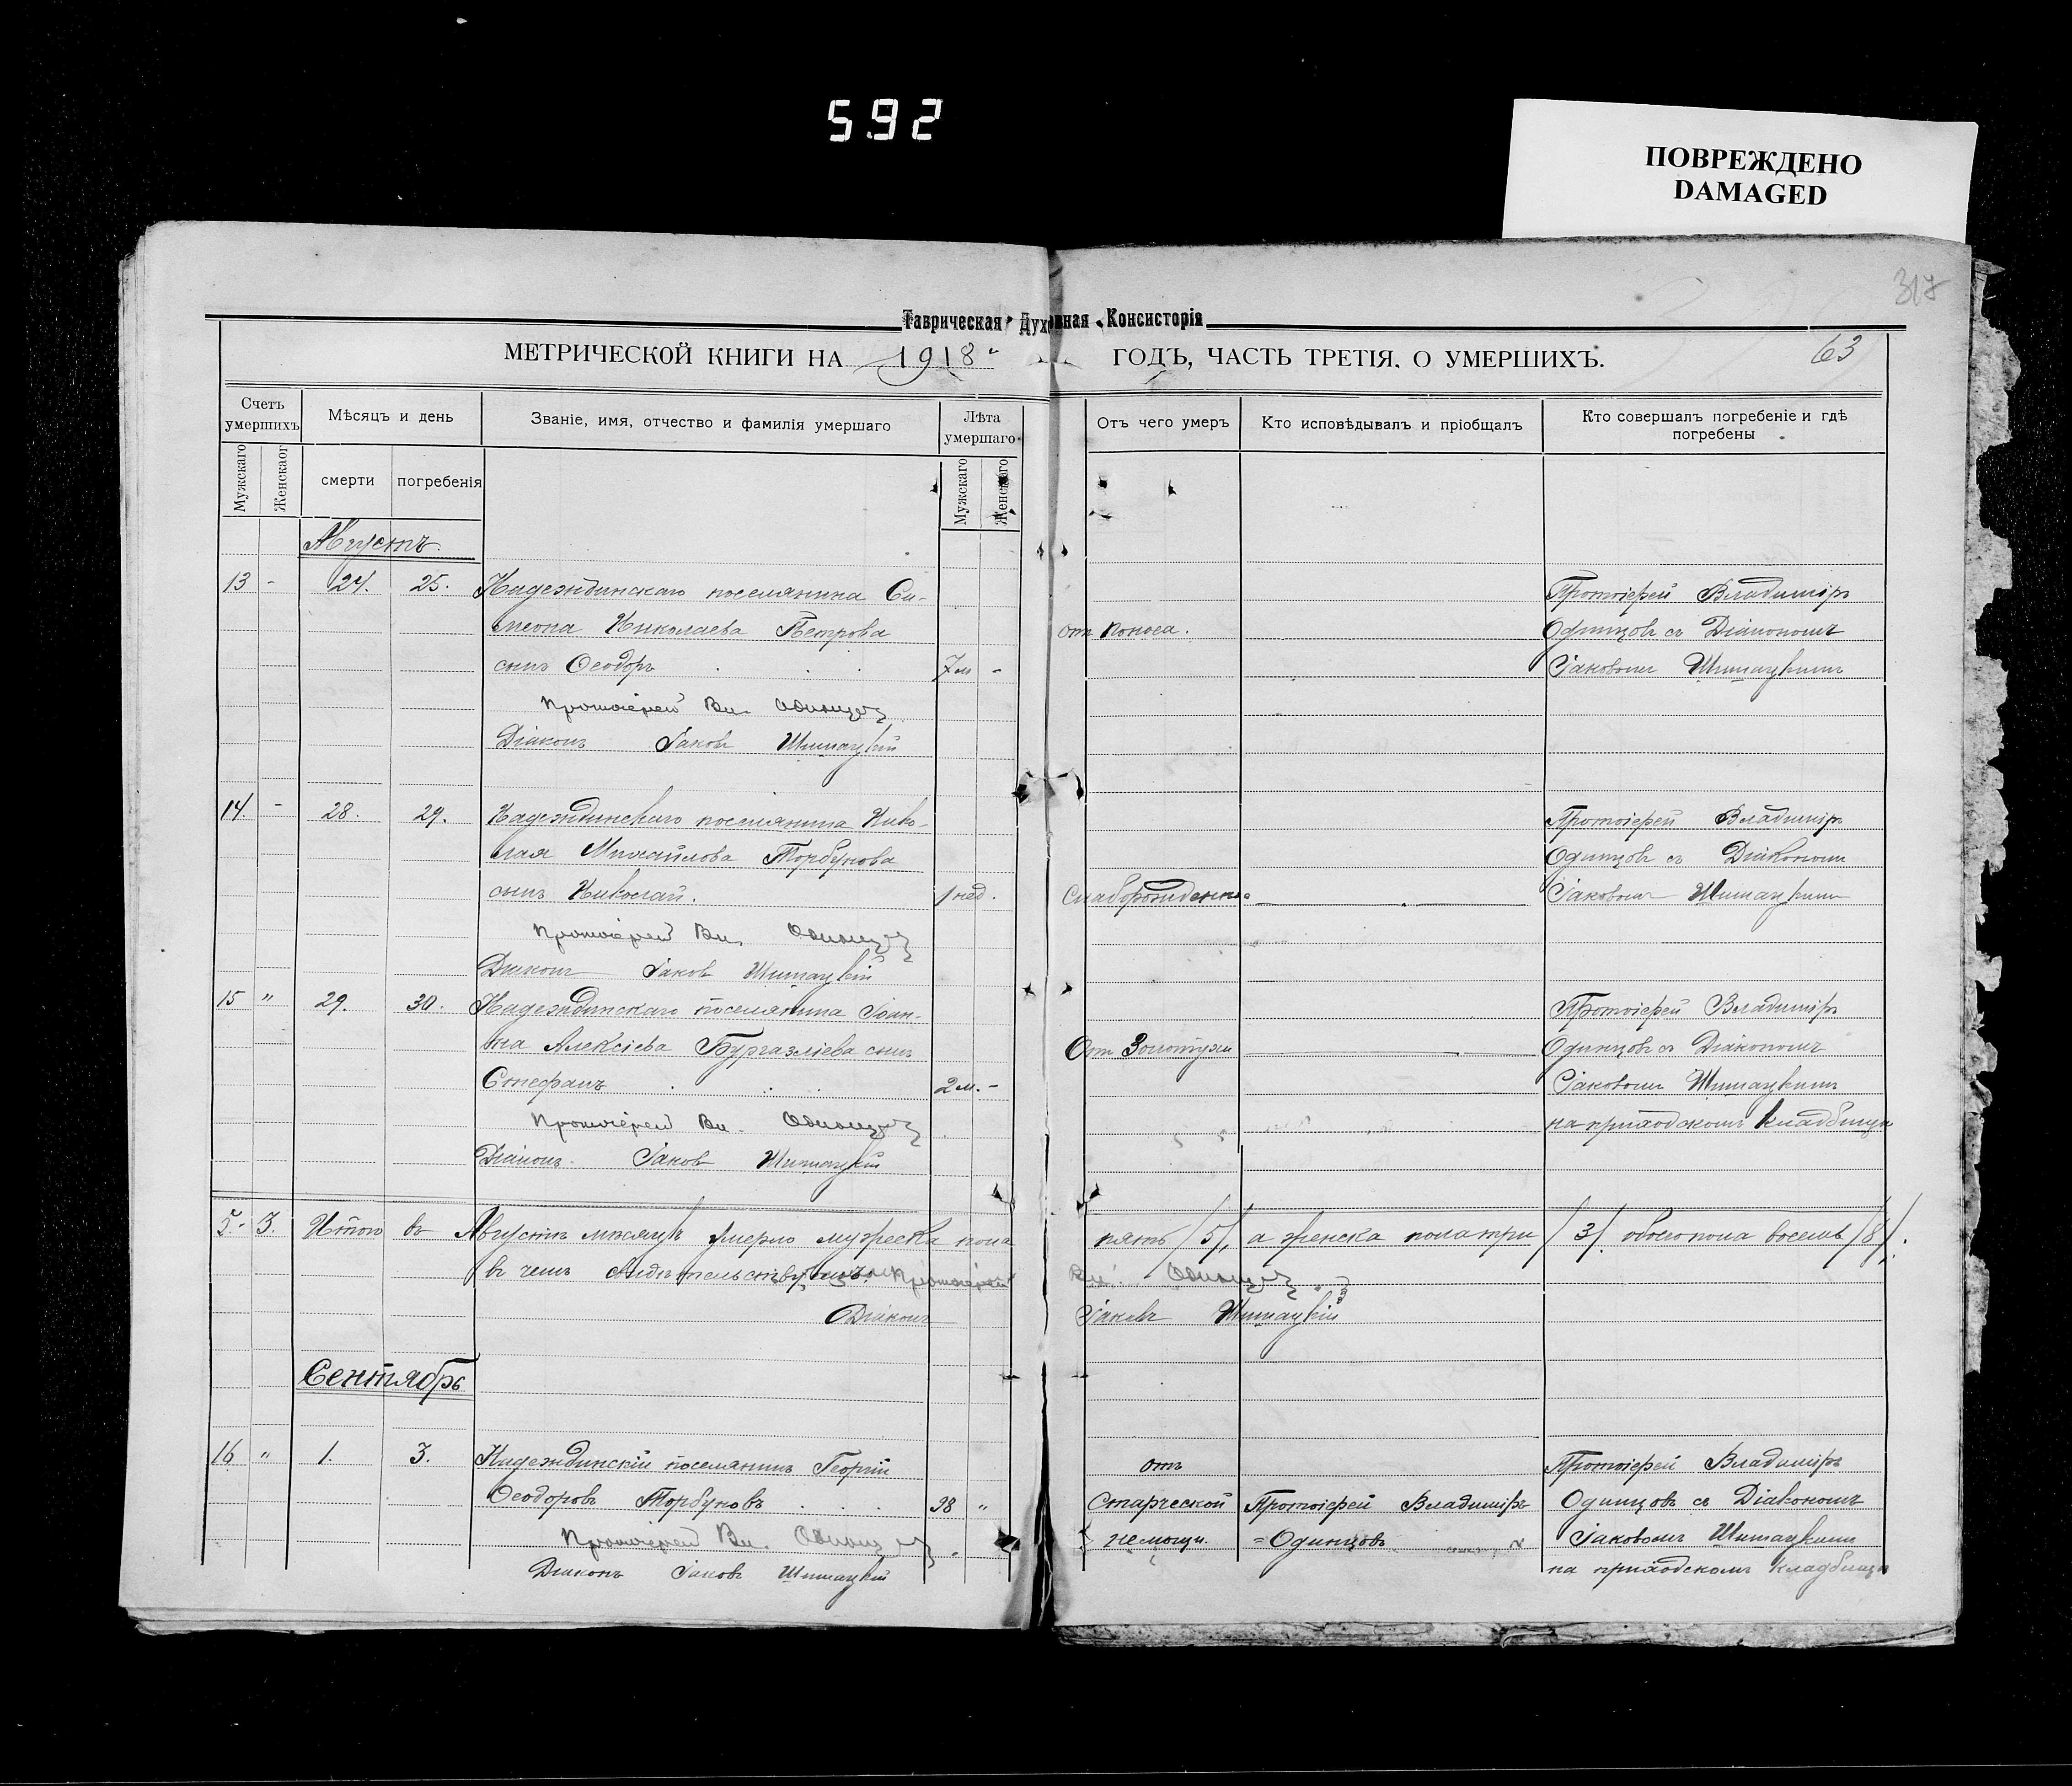 592
ПОВРЕЖДЕНО
DAMAGED
317
Таврическая Духовная Консисторія
МЕТРИЧЕСКОЙ КНИГИ НА 1918 ГОДЪ, ЧАСТЬ ТРЕТІЯ. О УМЕРШИХЪ.
63
Счетъ умершихъ
Мѣсяцъ и день
Званіе, имя, отчество и фамилія умершаго
Лѣта умершаго
Отъ чего умеръ
Кто исповѣдывалъ и пріобщалъ
Кто совершалъ погребеніе и гдѣ погребены
Мужскаго
Женскаог
смерти
погребенія
Мужскаго
Женскаго
Августъ.
13 - 24. 25. Надеждинскаго поселянина Си- Протоіерей Владимiръ
меона Николаева Петрова отъ поноса. Одинцовъ съ Діакономъ
сынъ Ѳеодоръ 7м - Іаковомъ Шишацкимъ
Протоіерей Вл. Одинцовъ
Діаконъ Іаковъ Шишацкій
14. - 28. 29. Надеждинскаго поселянина Нико- Протоіерей Владимiръ
лая Михайлова Торбунова Одинцовъ съ Діакономъ
сынъ Николай. 1 нед. Іаковомъ Шишацкимъ
Протоіерей Вл. Одинцовъ
Діаконъ Іаковъ Шишацкій
15 " 29. 30. Надеждинскаго поселянина Іоан- Протоіерей Владимiръ
на Алексіева Бургазліева сынъ Отъ Золотухи Одинцовъ съ Діакономъ
Стефанъ 2 м. - Іаковомъ Шишацкимъ
Протоіерей Вл. Одинцовъ на приходскомъ кладбищѣ
Діаконъ Іаковъ Шишацкій
5. 3. Итого въ Августѣ мѣсяцѣ умерло мужеска пола пять /5/, а женска пола три /3/. обоего пола восемь /8/.
въ чемъ Протоіерей Вл. Одинцовъ
Діаконъ Іаковъ Шишацкій
Сентябрь
16 " 1. 3. Надеждинскій поселянинъ Георгій отъ Протоіерей Владимiръ
Ѳеодоровъ Торбуновъ 98 " Старческой Протоіерей Владимiръ Одинцовъ съ Діакономъ
Протоіерей Вл. Одинцовъ немощи. Одинцовъ Іаковомъ Шишацкимъ
Діаконъ Іаковъ Шишацкій на приходскомъ кладбищѣ